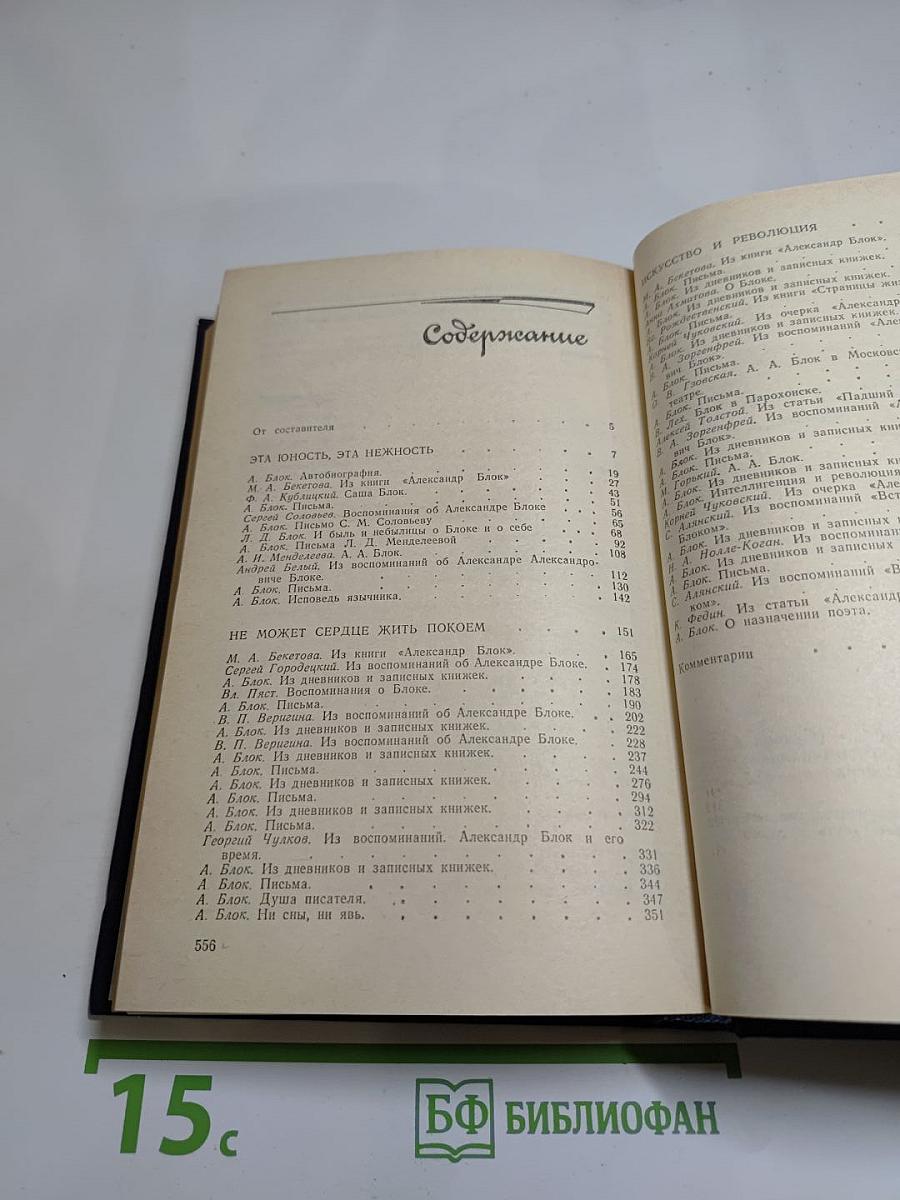 Содержание
От составителя 5
ЭТА ЮНОСТЬ, ЭТА НЕЖНОСТЬ 7
А. Блок. Автобиография. 19
М. А. Бекетова. Из книги «Александр Блок» 27
Ф. А. Кублицкий. Саша Блок. 43
А. Блок. Письма. 51
Сергей Соловьев. Воспоминания об Александре Блоке 56
А. Блок. Письмо С. М. Соловьеву 65
Л. Д. Блок. И быль и небылицы о Блоке и о себе 68
А. Блок. Письма Л. Д. Менделеевой 92
А. И. Менделеева. А. А. Блок. 108
Андрей Белый. Из воспоминаний об Александре Александро-
виче Блоке. 112
А. Блок. Письма. 130
А. Блок. Исповедь язычника. 142
НЕ МОЖЕТ СЕРДЦЕ ЖИТЬ ПОКОЕМ 151
М. А. Бекетова. Из книги «Александр Блок». 165
Сергей Городецкий. Из воспоминаний об Александре Блоке. 174
А. Блок. Из дневников и записных книжек. 178
Вл. Пяст. Воспоминания о Блоке. 183
А. Блок. Письма. 190
В. П. Веригина. Из воспоминаний об Александре Блоке. 202
А. Блок. Из дневников и записных книжек. 222
В. П. Веригина. Из воспоминаний об Александре Блоке. 228
А. Блок. Из дневников и записных книжек. 237
А. Блок. Письма. 244
А. Блок. Из дневников и записных книжек. 276
А. Блок. Письма. 294
А. Блок. Из дневников и записных книжек. 312
А. Блок. Письма. 322
Георгий Чулков. Из воспоминаний. Александр Блок и его
время. 331
А. Блок. Из дневников и записных книжек. 336
А Блок. Письма. 344
А. Блок. Душа писателя. 347
А. Блок. Ни сны, ни явь. 351
556
ИСКУССТВО И РЕВОЛЮЦИЯ
М. А. Бекетова. Из книги «Александр Блок».
А. Блок. Письма.
А. Блок. Из дневников и записных книжек.
Анна Ахматова. О Блоке.
А. Блок. Из дневников и записных книжек.
Вс. Рождественский. Из книги «Страницы
А. Блок. Письма.
Корней Чуковский. Из очерка «Александр
А. Блок. Из дневников и записных книжек.
В. А. Зоргенфрей. Из воспоминаний
вич Блок».
А. Блок. Письма.
О. В. Гзовская. А. А. Блок в
театре.
А. Блок. Письма.
В. Лех. Блок в Парохонске.
Алексей Толстой. Из статьи «Падший
В. А. Зоргенфрей. Из воспоминаний
вич Блок».
А. Блок. Из дневников и записных
А. Блок. Письма.
М. Горький. А. А. Блок.
А. Блок. Из дневников и записных
А. Блок. Интеллигенция и революция
Корней Чуковский. Из очерка
С. Алянский. Из воспоминаний
Блоком».
А. Блок. Из дневников и записных
Н. А. Нолле-Коган. Из
А. Блок. Из дневников и записных
А. Блок. Письма.
С. Алянский. Из воспоминаний
ком».
К. Федин. Из статьи «Александр
А. Блок. О назначении поэта.
Комментарии
15 с
БФ БИБЛИОФАН